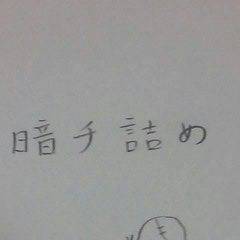 暗チ詰め